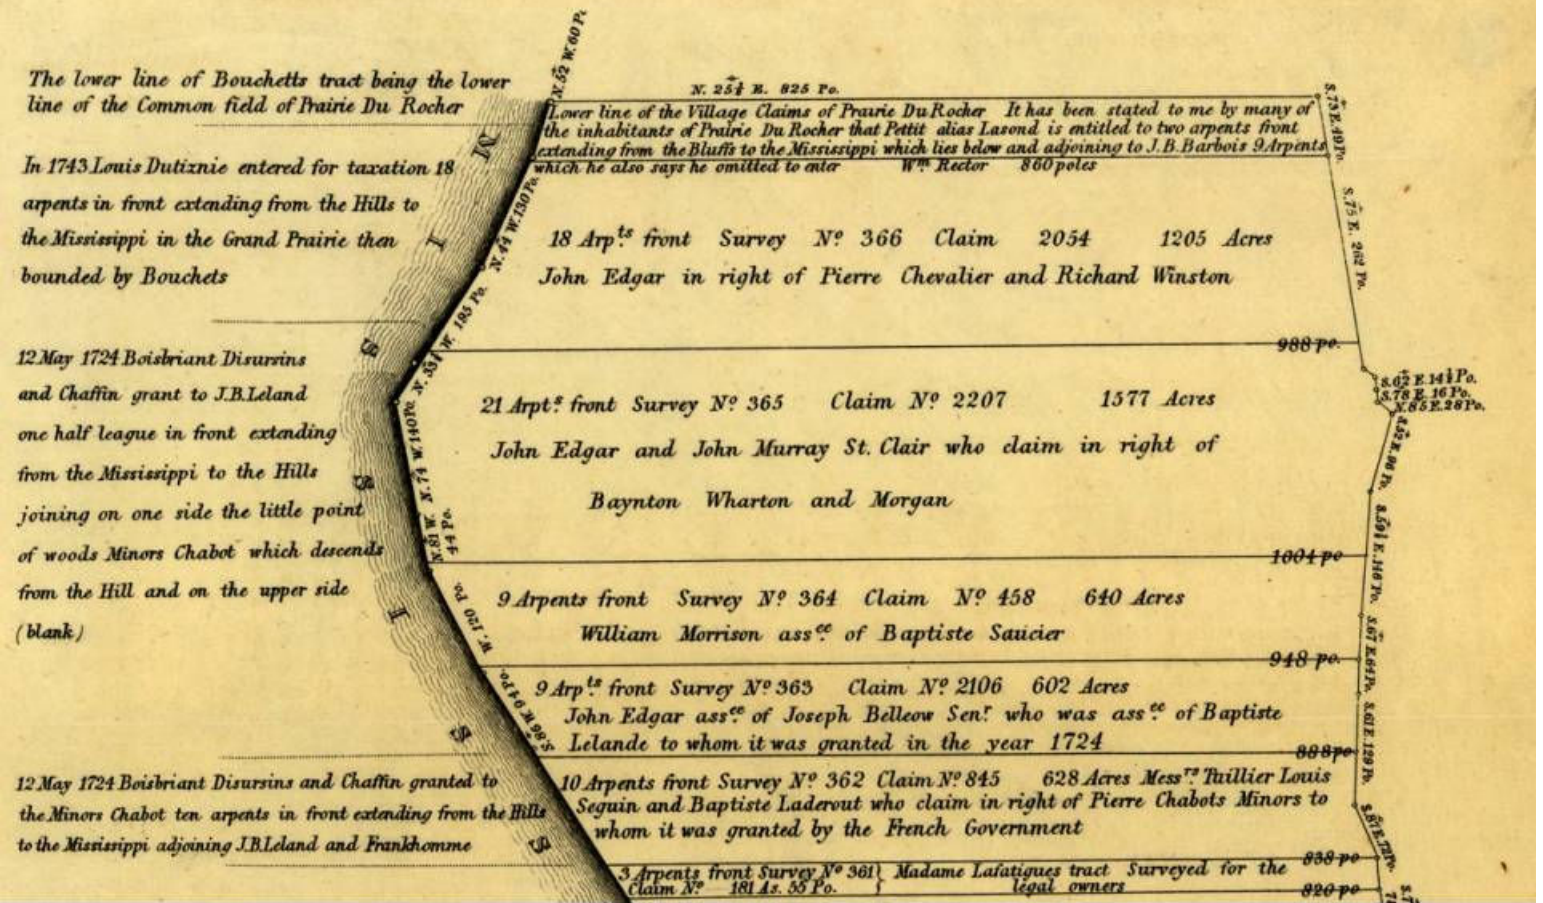 The lower line of Bouchetts tract being the lower
line of the Common field of Prairie Du Rocher
In 1743 Louis Dutiznie entered for taxation 18
arpents in front extending from the Hills to
the Mississippi in the Grand Prairie then
bounded by Bouchets
12 May 1724 Boisbriant Disursins
and Chaffin grant to J.B. Leland
one half league in front extending
from the Mississippi to the Hills
joining on one side the little point
of woods Minors Chabot which descends
from the Hill and on the upper side
(blank)
12 May 1724 Boisbriant Disursins and Chaffin granted to
the Minors Chabot ten arpents in front extending from the Hills
to the Mississippi adjoining J.B. Leland and Frankhomme
N I S S I S S
N. 52 W. 60 Po.
N. 44 W. 130 Po.
N. 33½ W. 195 Po.
N. 74 W. 140 Po.
N. 81 W. 44 Po.
W. 120 Po.
S. 86 W. 94 Po.
N. 25½ E. 825 Po.
Lower line of the Village Claims of Prairie Du Rocher It has been stated to me by many of
the inhabitants of Prairie Du Rocher that Pettit alias Lasond is entitled to two arpents front
extending from the Bluffs to the Mississippi which lies below and adjoining to J.B. Barbois 9 Arpents
which he also says he omitted to enter Wm. Rector 860 poles
18 Arpts. front Survey No. 366 Claim 2054 1205 Acres
John Edgar in right of Pierre Chevalier and Richard Winston
988 po.
21 Arpts. front Survey No. 365 Claim No. 2207 1577 Acres
John Edgar and John Murray St. Clair who claim in right of
Baynton Wharton and Morgan
1004 po
9 Arpents front Survey No. 364 Claim No. 458 640 Acres
William Morrison assee. of Baptiste Saucier
948 po.
9 Arpts. front Survey No. 363 Claim No. 2106 602 Acres
John Edgar assee. of Joseph Belleow Senr. who was assee. of Baptiste
Lelande to whom it was granted in the year 1724
888 po
10 Arpents front Survey No. 362 Claim No. 845 628 Acres Messrs. Tuillier Louis
Seguin and Baptiste Laderout who claim in right of Pierre Chabots Minors to
whom it was granted by the French Government
838 po
3 Arpents front Survey No. 361 } Madame Lafatigues tract Surveyed for the
Claim No. 181 As. 55 Po. } legal owners
820 po
S. 73 E. 49 Po.
S. 75 E. 262 Po.
S. 62 E. 14½ Po.
S. 78 E. 16 Po.
N. 85 E. 28 Po.
S. 52 E. 96 Po.
S. 59½ E. 146 Po.
S. 67 E. 64 Po.
S. 61 E. 129 Po.
S. 87 E. 72 Po.